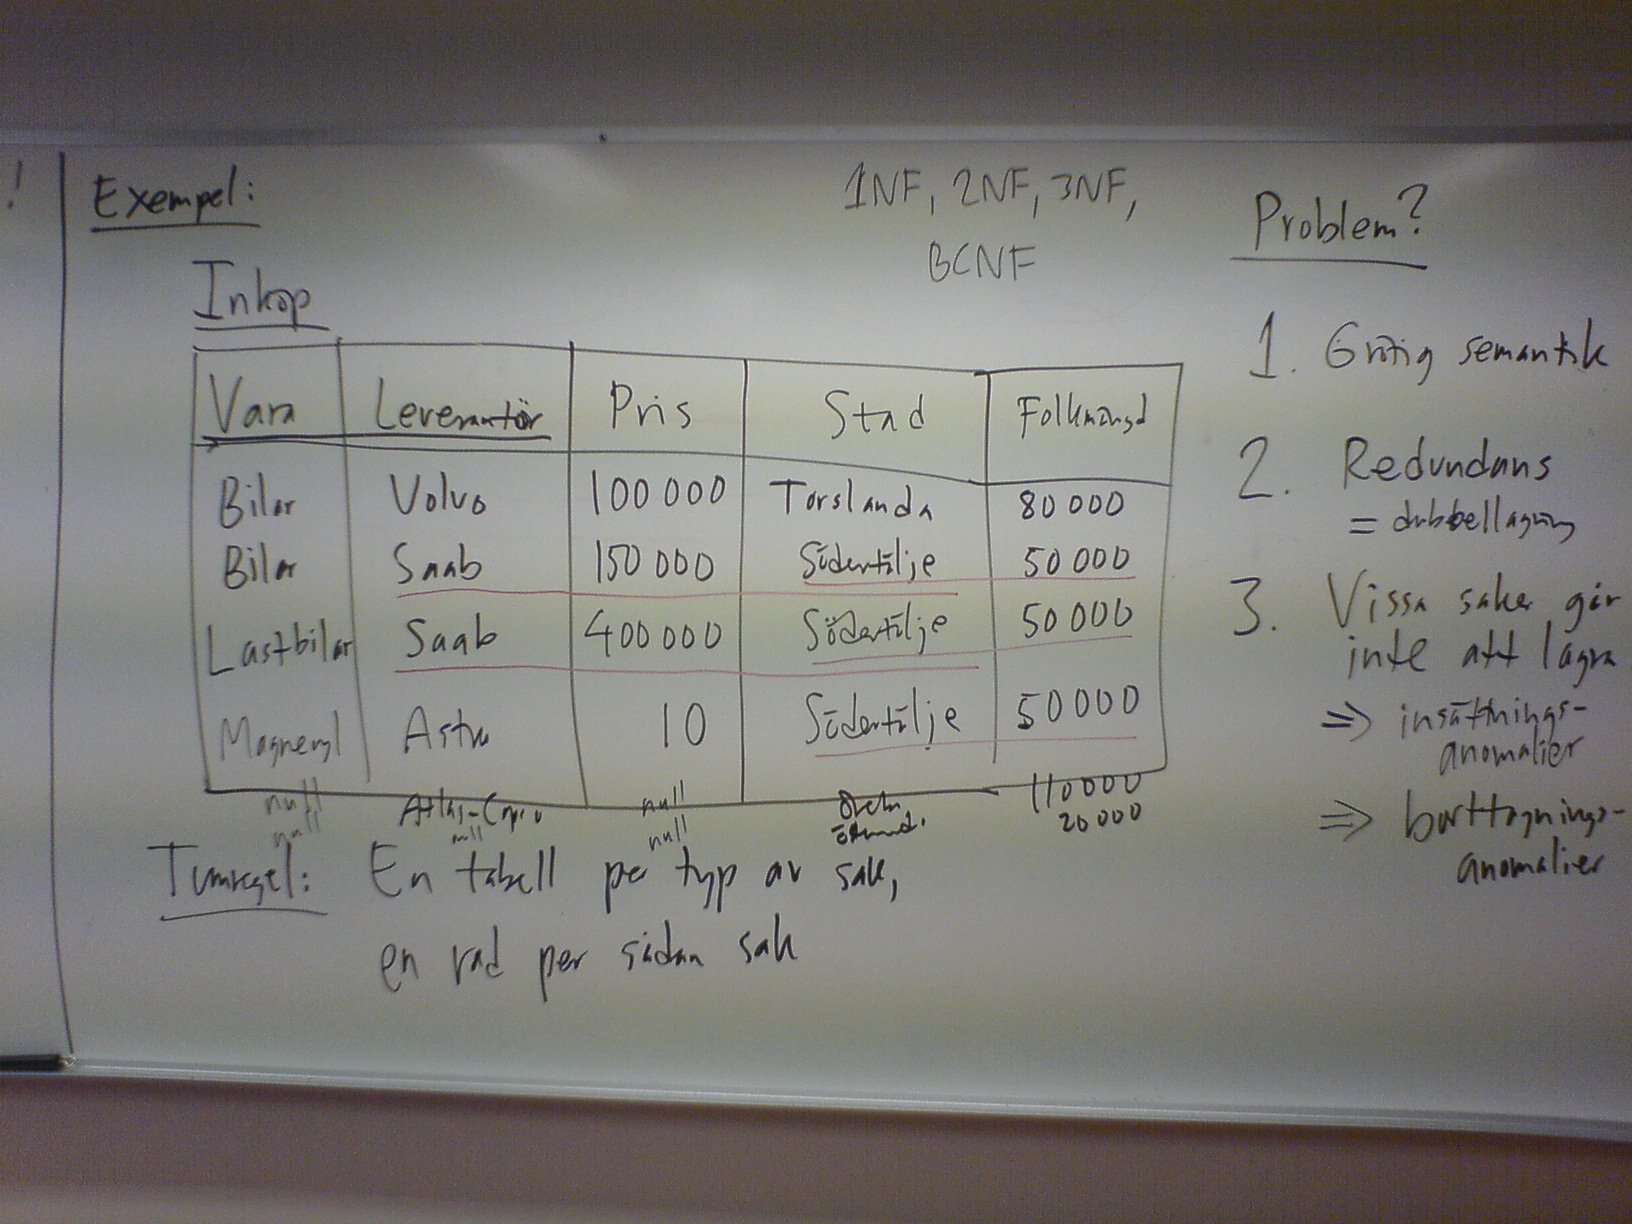 !
Exempel:
1NF, 2NF, 3NF,
BCNF
Inköp
Vara Leverantör Pris Stad Folkmängd
Bilar Volvo 100 000 Torslanda 80 000
Bilar Saab 150 000 Södertälje 50 000
Lastbilar Saab 400 000 Södertälje 50 000
Magnecyl Astra 10 Södertälje 50 000
null Atlas-Copco null 110 000
null null null 20 000
Tumregel: En tabell per typ av sak,
en rad per sådan sak
Problem?
1. Grötig semantik
2. Redundans
= dubbellagring
3. Vissa saker går
inte att lagra
⇒ insättnings-
anomalier
⇒ borttagnings-
anomalier